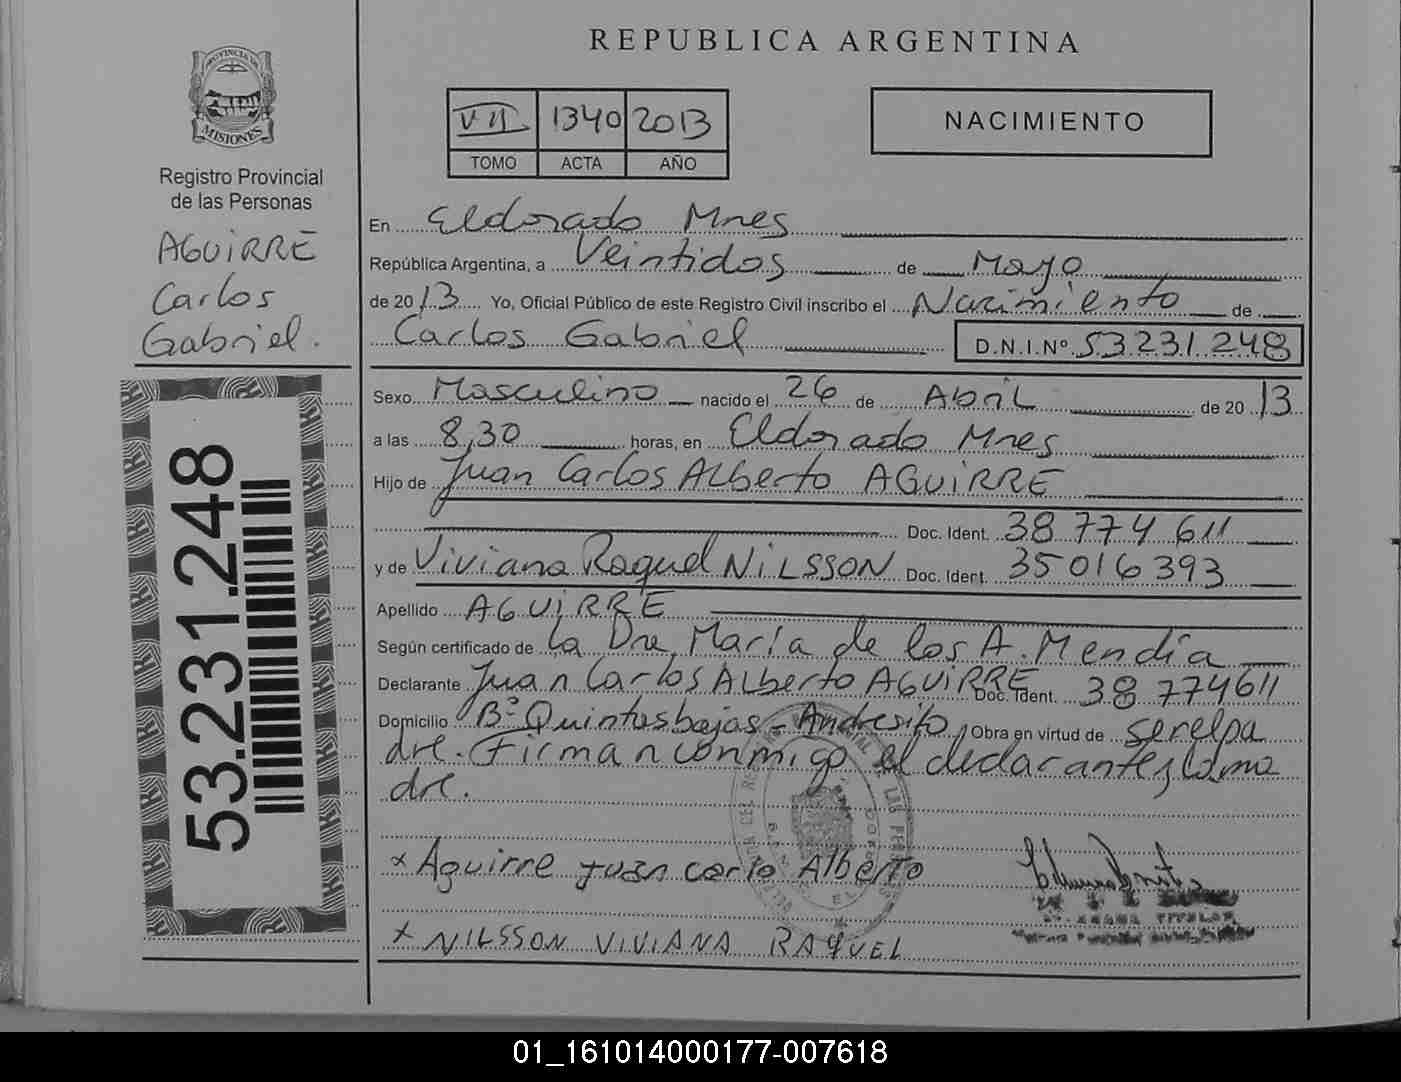 REPUBLICA ARGENTINA
PROVINCIA DE
MISIONES
Registro Provincial
de las Personas
AGUIRRE
Carlos
Gabriel.
53.231.248
VII 1340 2013
TOMO ACTA AÑO
NACIMIENTO
En Eldorado Mnes
República Argentina, a Veintidos de Mayo
de 2013 Yo, Oficial Público de este Registro Civil inscribo el Nacimiento de
Carlos Gabriel D.N.I.Nº 53231248
Sexo Masculino nacido el 26 de Abril de 2013
a las 8,30 horas, en Eldorado Mnes
Hijo de Juan Carlos Alberto AGUIRRE
Doc. Ident. 38 774 611
y de Viviana Raquel NILSSON Doc. Ident. 35016393
Apellido AGUIRRE
Según certificado de la Dra. María de los A. Mendía
Declarante Juan Carlos Alberto AGUIRRE Doc. Ident. 38 774611
Domicilio Bº Quintas bajas - Andresito Obra en virtud de ser el pa
dre. Firman conmigo el declarante y la ma
dre.
x Aguirre Juan Carlo Alberto
TITULAR
x NILSSON VIVIANA RAQUEL
01_161014000177-007618